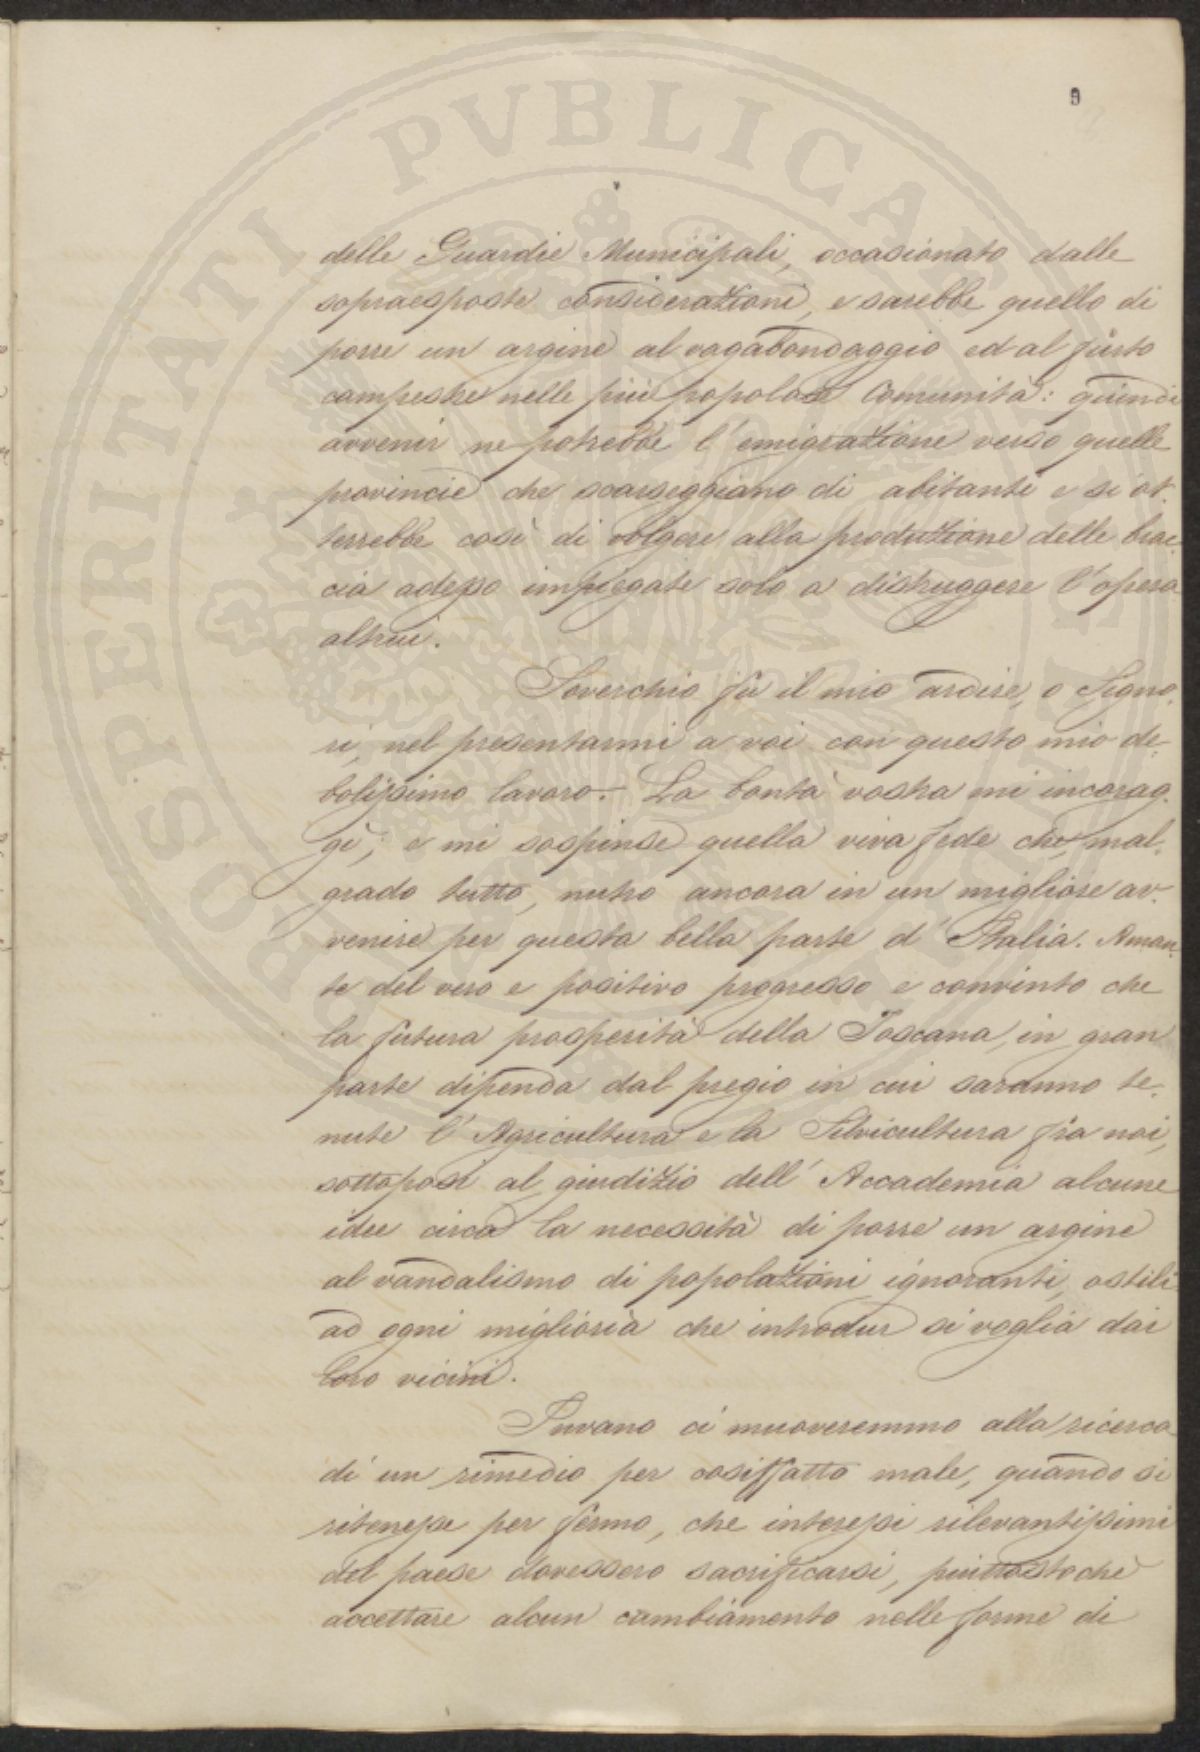 PROSPERITATI PVBLICAE AVGENDAE
9
delle Guardie Municipali, occasionato dalle
sopraesposte considerazioni, e sarebbe quello di
porre un argine al vagabondaggio ed al furto
campestre nelle più popolose Comunità: quindi
avvenir ne potrebbe l'emigrazione verso quelle
provincie che scarseggiano di abitanti e si ot-
terrebbe così di volgere alla produzione delle brac-
cia adesso impiegate solo a distruggere l'opera
altrui.
Soverchio fù il mio ardire, o Signo-
ri, nel presentarmi a voi con questo mio de-
bolissimo lavoro. La bontà vostra mi incorag-
gì, e mi sospinse quella viva fede che, mal-
grado tutto, nutro ancora in un migliore av-
venire per questa bella parte d'Italia. Aman-
te del vero e positivo progresso e convinto che
la futura prosperità della Toscana, in gran
parte dipenda dal pregio in cui saranno te-
nute l'Agricultura e la Silvicultura fra noi,
sottoposi al giudizio dell'Accademia alcune
idee circa la necessità di porre un argine
al vandalismo di popolazioni ignoranti, ostili
ad ogni miglioria che introdur si voglia dai
loro vicini.
Invano ci muoveremmo alla ricerca
di un rimedio per cosiffatto male, quando si
ritenesse per fermo, che interessi rilevantissimi
del paese dovessero sacrificarsi, piuttostochè
accettare alcun cambiamento nelle forme di